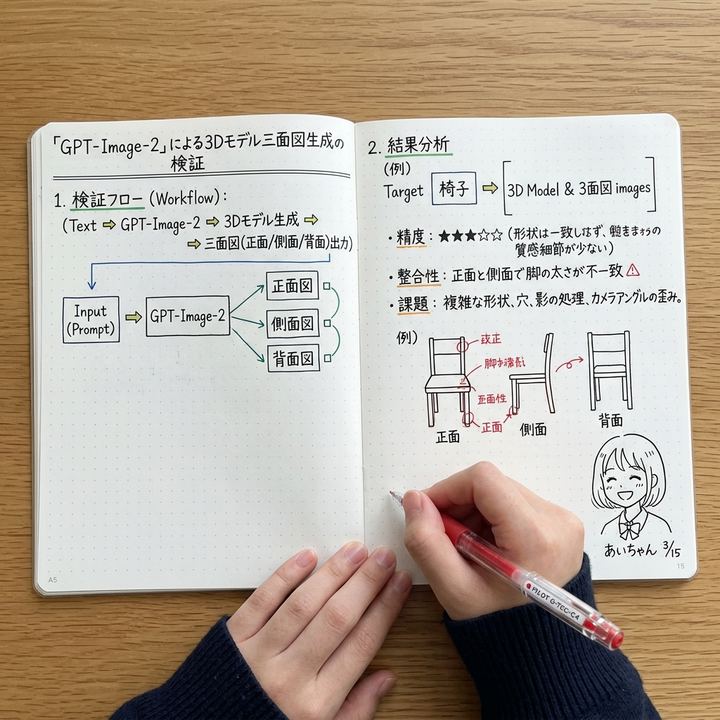 「GPT-Image-2」による3Dモデル三面図生成の
検証
1. 検証フロー (Workflow):
(Text ⇨ GPT-Image-2 ⇨ 3Dモデル生成 ⇨
⇨ 三面図(正面/側面/背面)出力)
Input
(Prompt)
GPT-Image-2
正面図
側面図
背面図
A5
2. 結果分析
(例)
Target 椅子 ⇨ [3D Model & 3面図 images]
・精度: ★★★☆☆ (形状は一致しはず、
質感細節が少ない)
・整合性: 正面と側面で脚の太さが不一致⚠
・課題: 複雑な形状、穴、影の処理、カメラアングルの歪み。
例)
改正
正面性
正面
正面
側面
背面
あいちゃん 3/15
15
PILOT G-TEC-C4